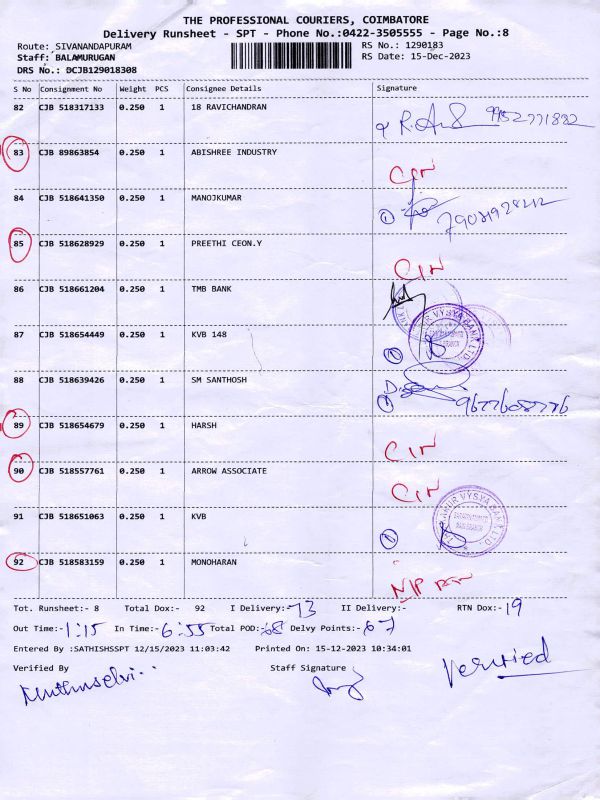 THE PROFESSIONAL COURIERS, COIMBATORE
Delivery Runsheet - SPT - Phone No.:0422-3505555 - Page No.:8
Route: SIVANANDAPURAM RS No.: 1290183
Staff: BALAMURUGAN RS Date: 15-Dec-2023
DRS No.: DCJB129018308
S No Consignment No Weight PCS Consignee Details Signature
82 CJB 518317133 0.250 1 18 RAVICHANDRAN 9952771882
83 CJB 89863854 0.250 1 ABISHREE INDUSTRY CIN
84 CJB 518641350 0.250 1 MANOJKUMAR 1
85 CJB 518628929 0.250 1 PREETHI CEON.Y CIN
86 CJB 518661204 0.250 1 TMB BANK
87 CJB 518654449 0.250 1 KVB 148 1
88 CJB 518639426 0.250 1 SM SANTHOSH 1
89 CJB 518654679 0.250 1 HARSH CIN
90 CJB 518557761 0.250 1 ARROW ASSOCIATE CIN
91 CJB 518651063 0.250 1 KVB 1
92 CJB 518583159 0.250 1 MONOHARAN
Tot. Runsheet:- 8 Total Dox:- 92 I Delivery:- 73 II Delivery:- RTN Dox:- 19
Out Time:- 1:15 In Time:- 6:55 Total POD:- 68 Delvy Points:- 67
Entered By :SATHISHSSPT 12/15/2023 11:03:42 Printed On: 15-12-2023 10:34:01
Verified By Staff Signature Verified
Muthuselvi..